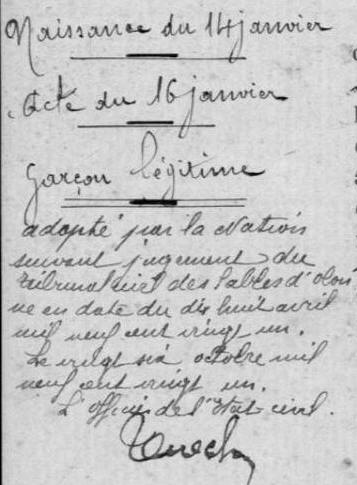 Naissance du 14 janvier
Acte du 16 janvier
Garçon légitime
adopté par la Nation
suivant jugement du
tribunal civil des Sables d'Olon
ne en date du dix huit avril
mil neuf cent vingt un.
Le vingt six octobre mil
neuf cent vingt un.
L'officier de l'Etat-civil.